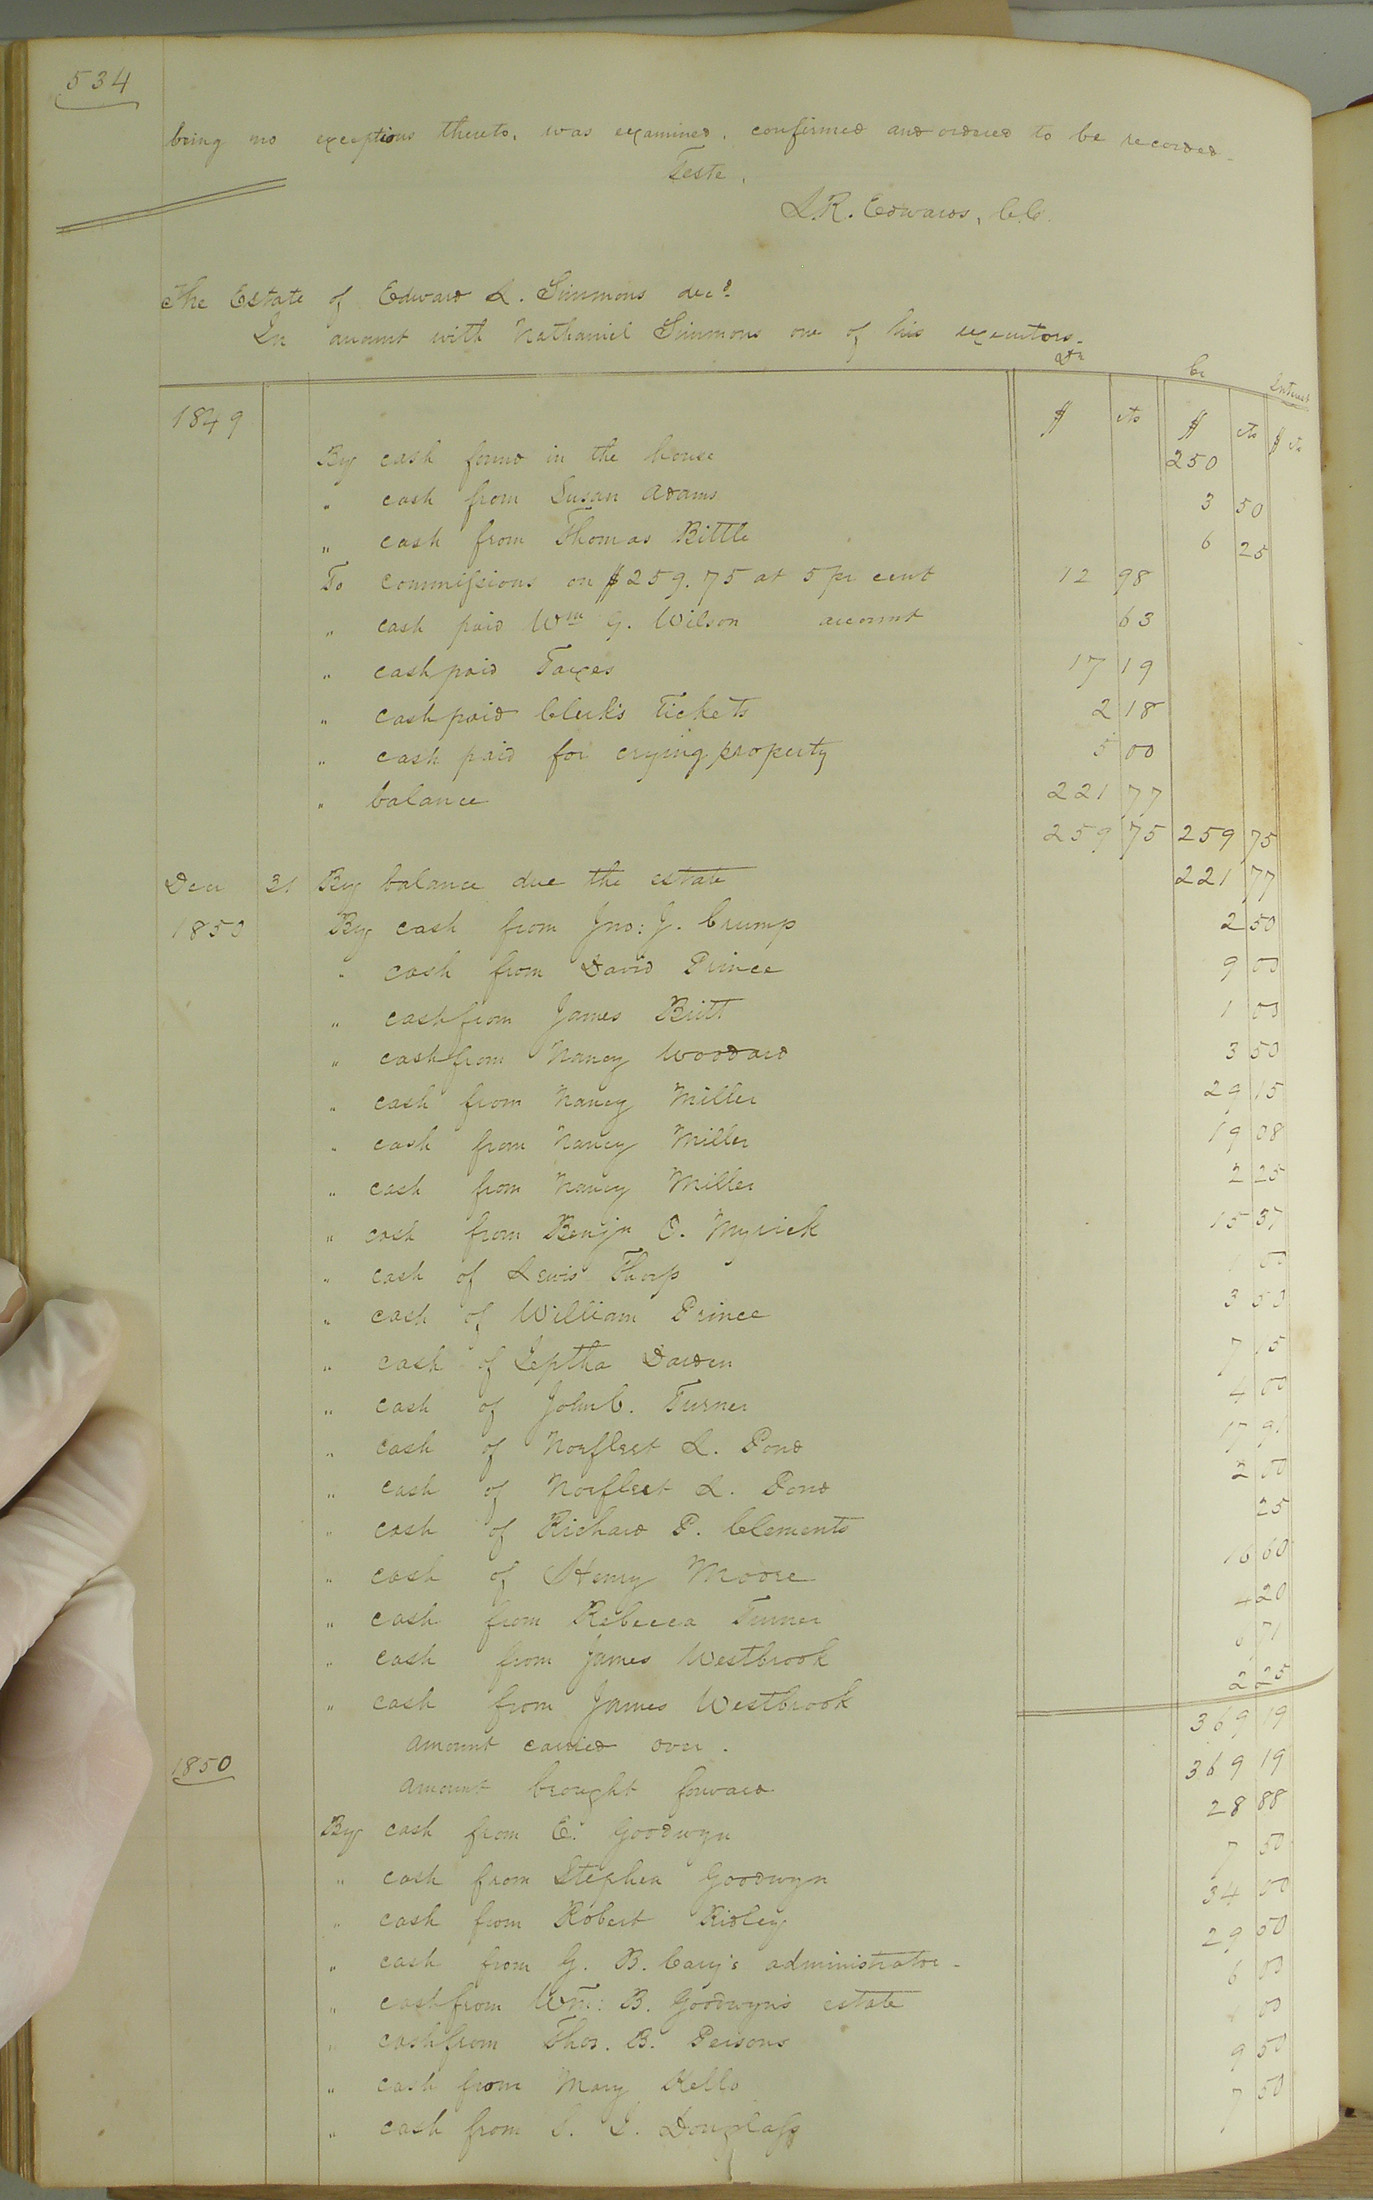 534
being no exceptions thereto, was examined, confirmed and ordered to be recorded.
Teste,
L. R. Edwards, C.C.
The Estate of Edward L. Simmons decd.
In account with Nathaniel Simmons one of his executors.
Dr Cr Interest
1849 $ cts $ cts $ cts
By cash found in the house 250
" cash from Susan Adams 3 50
" cash from Thomas Bittle 6 25
To commissions on $259.75 at 5 pr cent 12 98
" cash paid Wm G. Wilson account 63
" cash paid Taxes 17 19
" cash paid Clerk's Tickets 2 18
" cash paid for crying property 5 00
" balance 221 77
259 75 259 75
Dec 31 By balance due the estate 221 77
1850 By cash from Jno: J. Crump 2 50
" cash from David Prince 9 00
" cash from James Britt 1 00
" cash from Nancy Woodard 3 50
" cash from Nancy Miller 29 15
" cash from Nancy Miller 19 08
" cash from Nancy Miller 2 25
" cash from Benjn O. Myrick 15 37
" cash of Lewis Thorp 1 00
" cash of William Prince 3 50
" cash of Jeptha Darden 7 15
" cash of John C. Turner 4 00
" cash of Norfleet L. Pond 17 91
" cash of Norfleet L. Pond 2 00
" cash of Richard P. Clements 25
" cash of Henry Moore 16 60
" cash from Rebecca Turner 4 20
" cash from James Westbrook 71
" cash from James Westbrook 2 25
amount carried over. 369 19
1850 amount brought forward 369 19
By cash from E. Goodwyn 28 88
" cash from Stephen Goodwyn 7 50
" cash from Robert Ridley 34 00
" cash from G. B. Cary's administrator 29 00
" cash from Wm: B. Goodwyn's estate 6 00
" cash from Thos. B. Persons 00
" cash from Mary Kello 9 50
" cash from S. Douglass 7 50